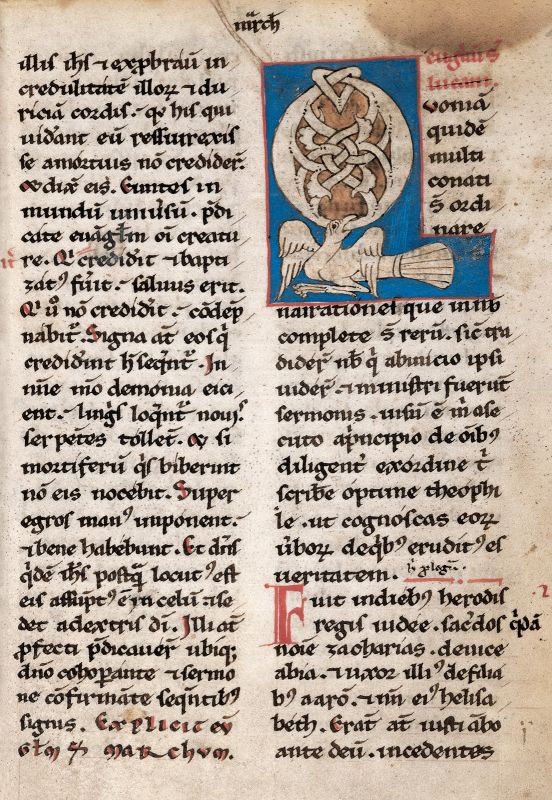 march
illis ihs & exprbrau in
credulitatē illorꝝ & du
riciā cordis. qꝛ his qui
uidant eū ressurrexis
se amortuis nō credider̄.
& dix̄ eis. Euntes in
mundū uniūsū. p̄di
cate euāgłm oī creatu
re. Qī credidit & bapti
zatꝰ fūit. saluus erit.
Qī ū nō credid̄it. cōdēp
nabit̄. Signa at̄ eos qī
credidīnt h̄ seq̄nt̄. In
nīne mō demonia eici
ent. lingīs loq̄nt̄ nouīs.
serpētes tollet̄. & si
mortiferū q̄s biberint
nō eis nocebit. Super
egros manꝰ imponent.
& bene habebunt. Et dn̄s
q̄dē ihs postq̄ locutꝰ est
eis assūptꝰ ē in celū. & se
det adextris dī. Illi at̄
p̄fecti p̄dicauer̄ ubiqꝫ
dnō cohopante & sermo
ne cōfirmāte seq̄ntibꝰ
signis. Explicit eū
głm s̄ marchum.
euglm s̄
lucam.
Q
uoniā
quidē
multi
conati
s̄ ordi
nare
narrationes que in nb̄
complete s̄ rerū. sic̄ tra
dider̄ nb̄ qī abinicio ipsi
uider̄. & ministri fuerūt
sermonis. uisū ē m̄ ase
cuto ap̄ncipio de oībꝰ
diligent̄ exordine t̄
scribē optime theophi
le. ut cognoscas eorꝝ
ūborꝝ deq̄bꝰ eruditꝰ es
ueritatem.
Fuit indiebꝰ herodis
regis iudee. sac̄dos q̄dā
noīe zacharias. deuice
abia. & uxor illiꝰ defilia
bꝰ aarō. & nm̄ eiꝰ helisa
beth. Erāt at̄ iusti ābo
ante deū. incedentes